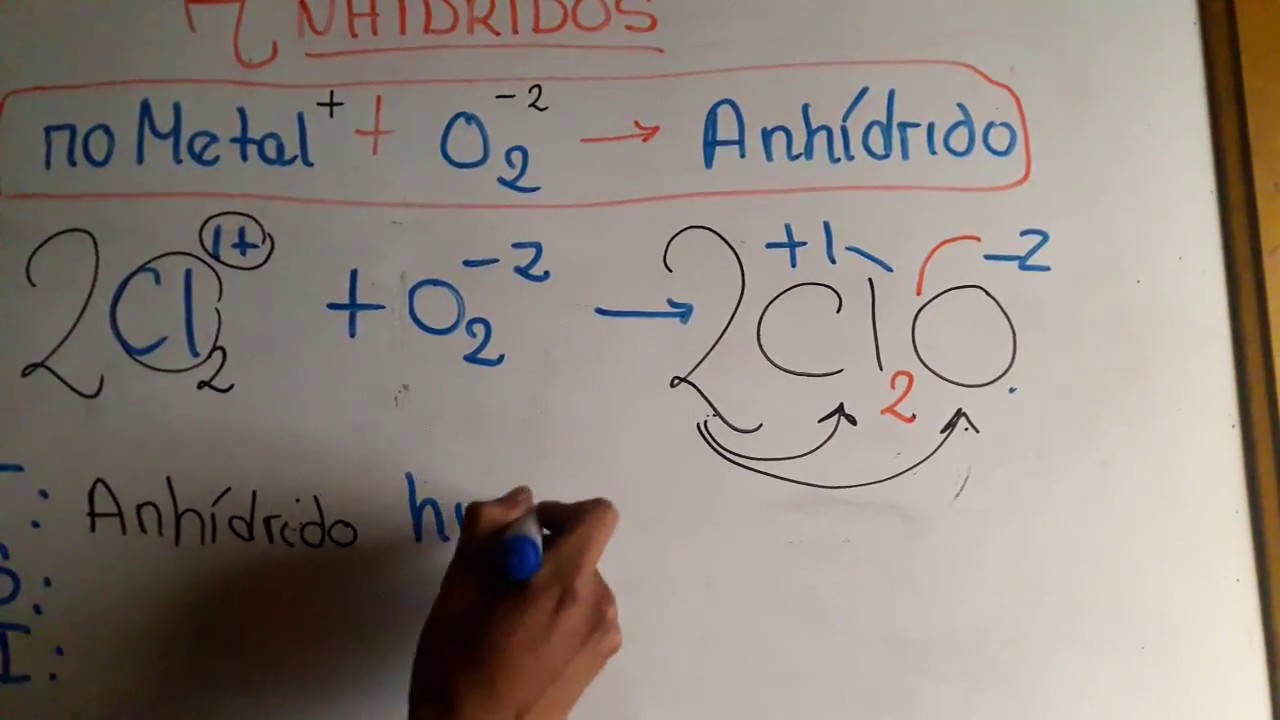 ANHÍDRIDOS
no Metal⁺ + O₂⁻² → Anhídrido
2Cl₂¹⁺ + O₂⁻² → 2Cl₂⁺¹O⁻²
: Anhídrido
:
I: